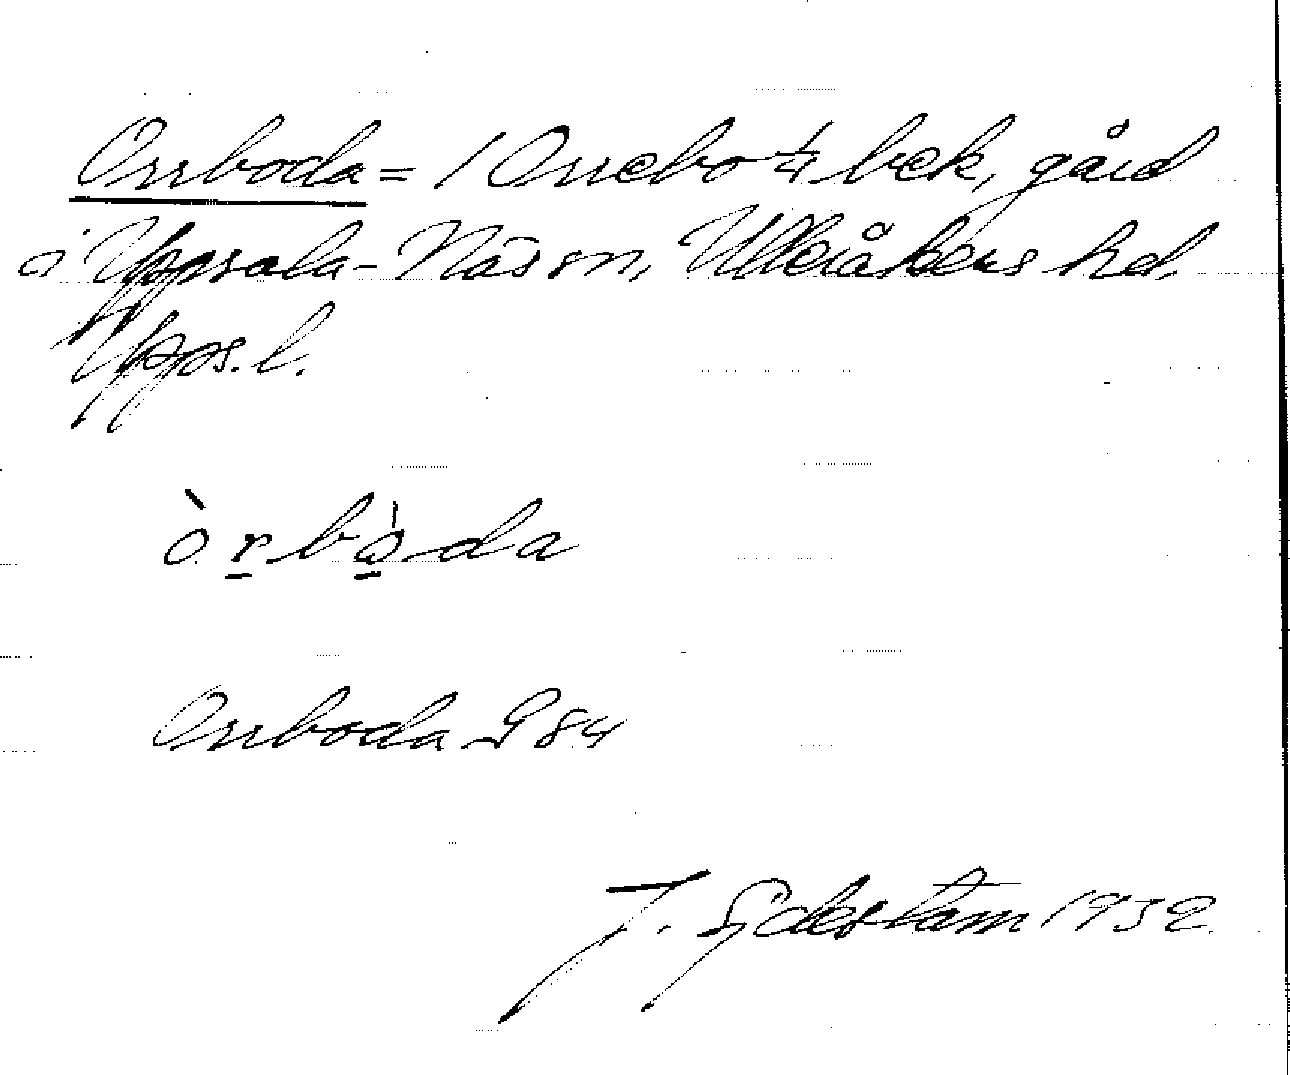 Orrboda = / Orrebo ¼ bek, gård
i Uppsala-Näs sn, Ulleråkers hd.
Upps. l.
òrbòda
Orrboda G 84
J. Sjdestam 1932